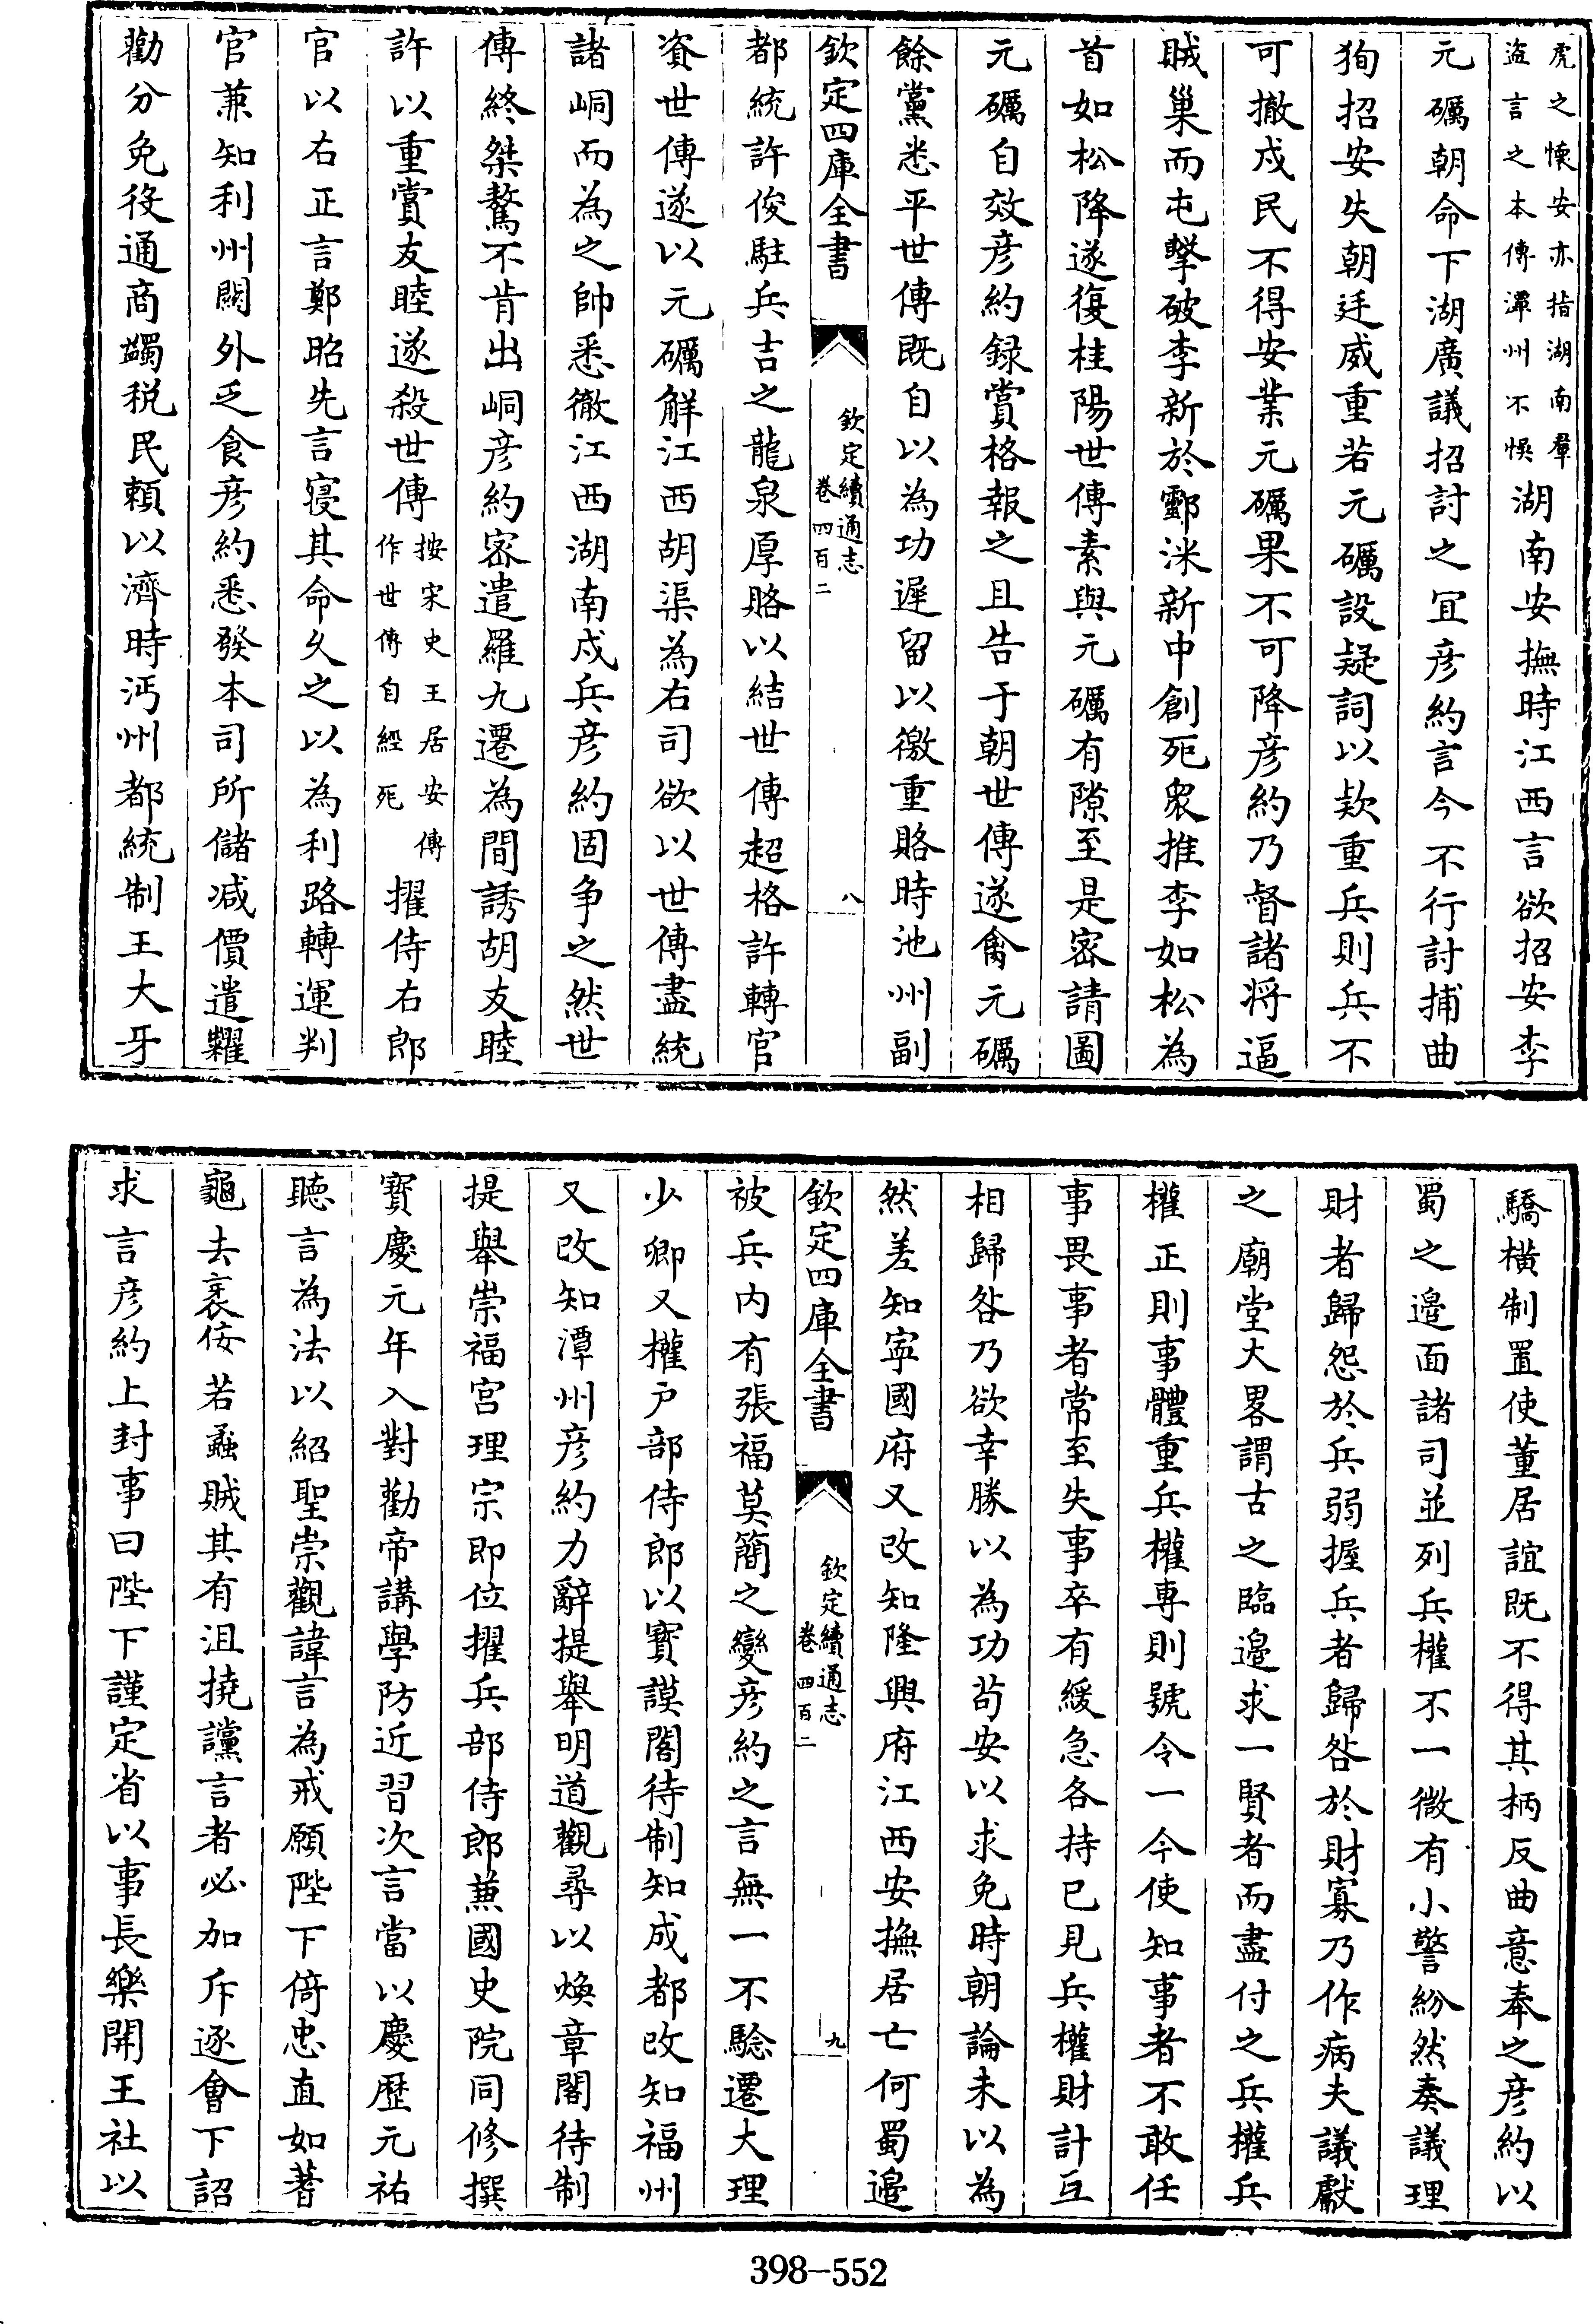 虎之懐安亦指湖南羣
盜言之本傳潭州不悞
湖南安撫時江西言欲招安李
元礪朝命下湖廣議招討之宜彦約言今不行討捕曲
狥招安失朝廷威重若元礪設疑詞以欵重兵則兵不
可撤戍民不得安業元礪果不可降彦約乃督諸将逼
賊巢而屯擊破李新於酃洣新中創死衆推李如松為
首如松降遂復桂陽世傳素與元礪有隙至是宻請圖
元礪自效彦約録賞格報之且告于朝世傳遂禽元礪
餘黨悉平世傳既自以為功遲留以徼重賂時池州副
欽定四庫全書
欽定續通志
卷四百二
八
都統許俊駐兵吉之龍泉厚賂以結世傳超格許轉官
資世傳遂以元礪解江西胡渠為右司欲以世傳盡統
諸峒而為之帥悉徹江西湖南戍兵彦約固争之然世
傳終桀驁不肯出峒彦約宻遣羅九遷為間誘胡友睦
許以重賞友睦遂殺世傳
按宋史王居安傳
作世傳自經死
擢侍右郎
官以右正言鄭昭先言寢其命久之以為利路轉運判
官兼知利州闗外乏食彦約悉發本司所儲減價遣糶
勸分免役通商蠲税民頼以濟時沔州都統制王大牙
驕横制置使董居誼既不得其柄反曲意奉之彦約以
蜀之邉面諸司並列兵權不一微有小警紛然奏議理
財者歸怨於兵弱握兵者歸咎於財寡乃作病夫議獻
之廟堂大畧謂古之臨邉求一賢者而盡付之兵權兵
權正則事體重兵權專則號令一今使知事者不敢任
事畏事者常至失事卒有緩急各持已見兵權財計互
相歸咎乃欲幸勝以為功茍安以求免時朝論未以為
然差知寜國府又改知隆興府江西安撫居亡何蜀邉
欽定四庫全書
欽定續通志
卷四百二
九
被兵内有張福莫簡之變彦約之言無一不騐遷大理
少卿又權户部侍郎以寳謨閣待制知成都改知福州
又改知潭州彦約力辭提舉明道觀尋以煥章閣待制
提舉崇福宫理宗即位擢兵部侍郎兼國史院同修撰
寳慶元年入對勸帝講學防近習次言當以慶歷元祐
聽言為法以紹聖崇觀諱言為戒願陛下倚忠直如蓍
龜去袤佞若蟊賊其有沮撓讜言者必加斥逐會下詔
求言彦約上封事曰陛下謹定省以事長樂開王社以
398-552